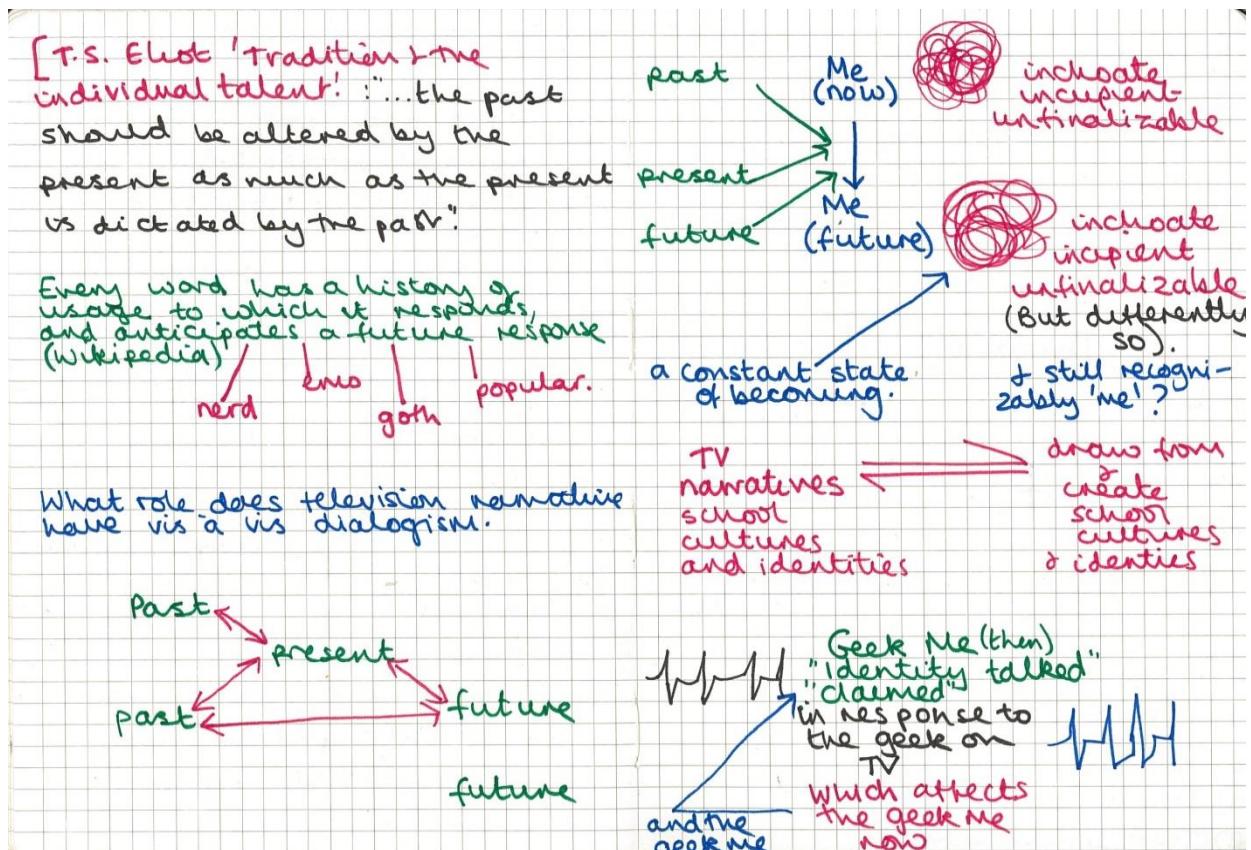 [T.S. Eliot 'Tradition & the
individual talent! : "...the past
should be altered by the
present as much as the present
is dictated by the past".
Every word has a history of
usage to which it responds,
and anticipates a future response
(Wikipedia)
nerd
emo
goth
popular.
What role does television narrative
have vis a vis dialogism.
Past
present
past
future
future
past
present
future
Me
(now)
Me
(future)
inchoate
incipient
unfinalizable
inchoate
incipient
unfinalizable
(But differently
so).
& still recogni-
zably 'me'?
a constant state
of becoming.
TV
narratives
school
cultures
and identities
draw from
&
create
school
cultures
& identies
Geek Me (then)
"Identity talked"
"claimed"
in response to
the geek on
TV
which affects
the geek me
now
and the
geek me